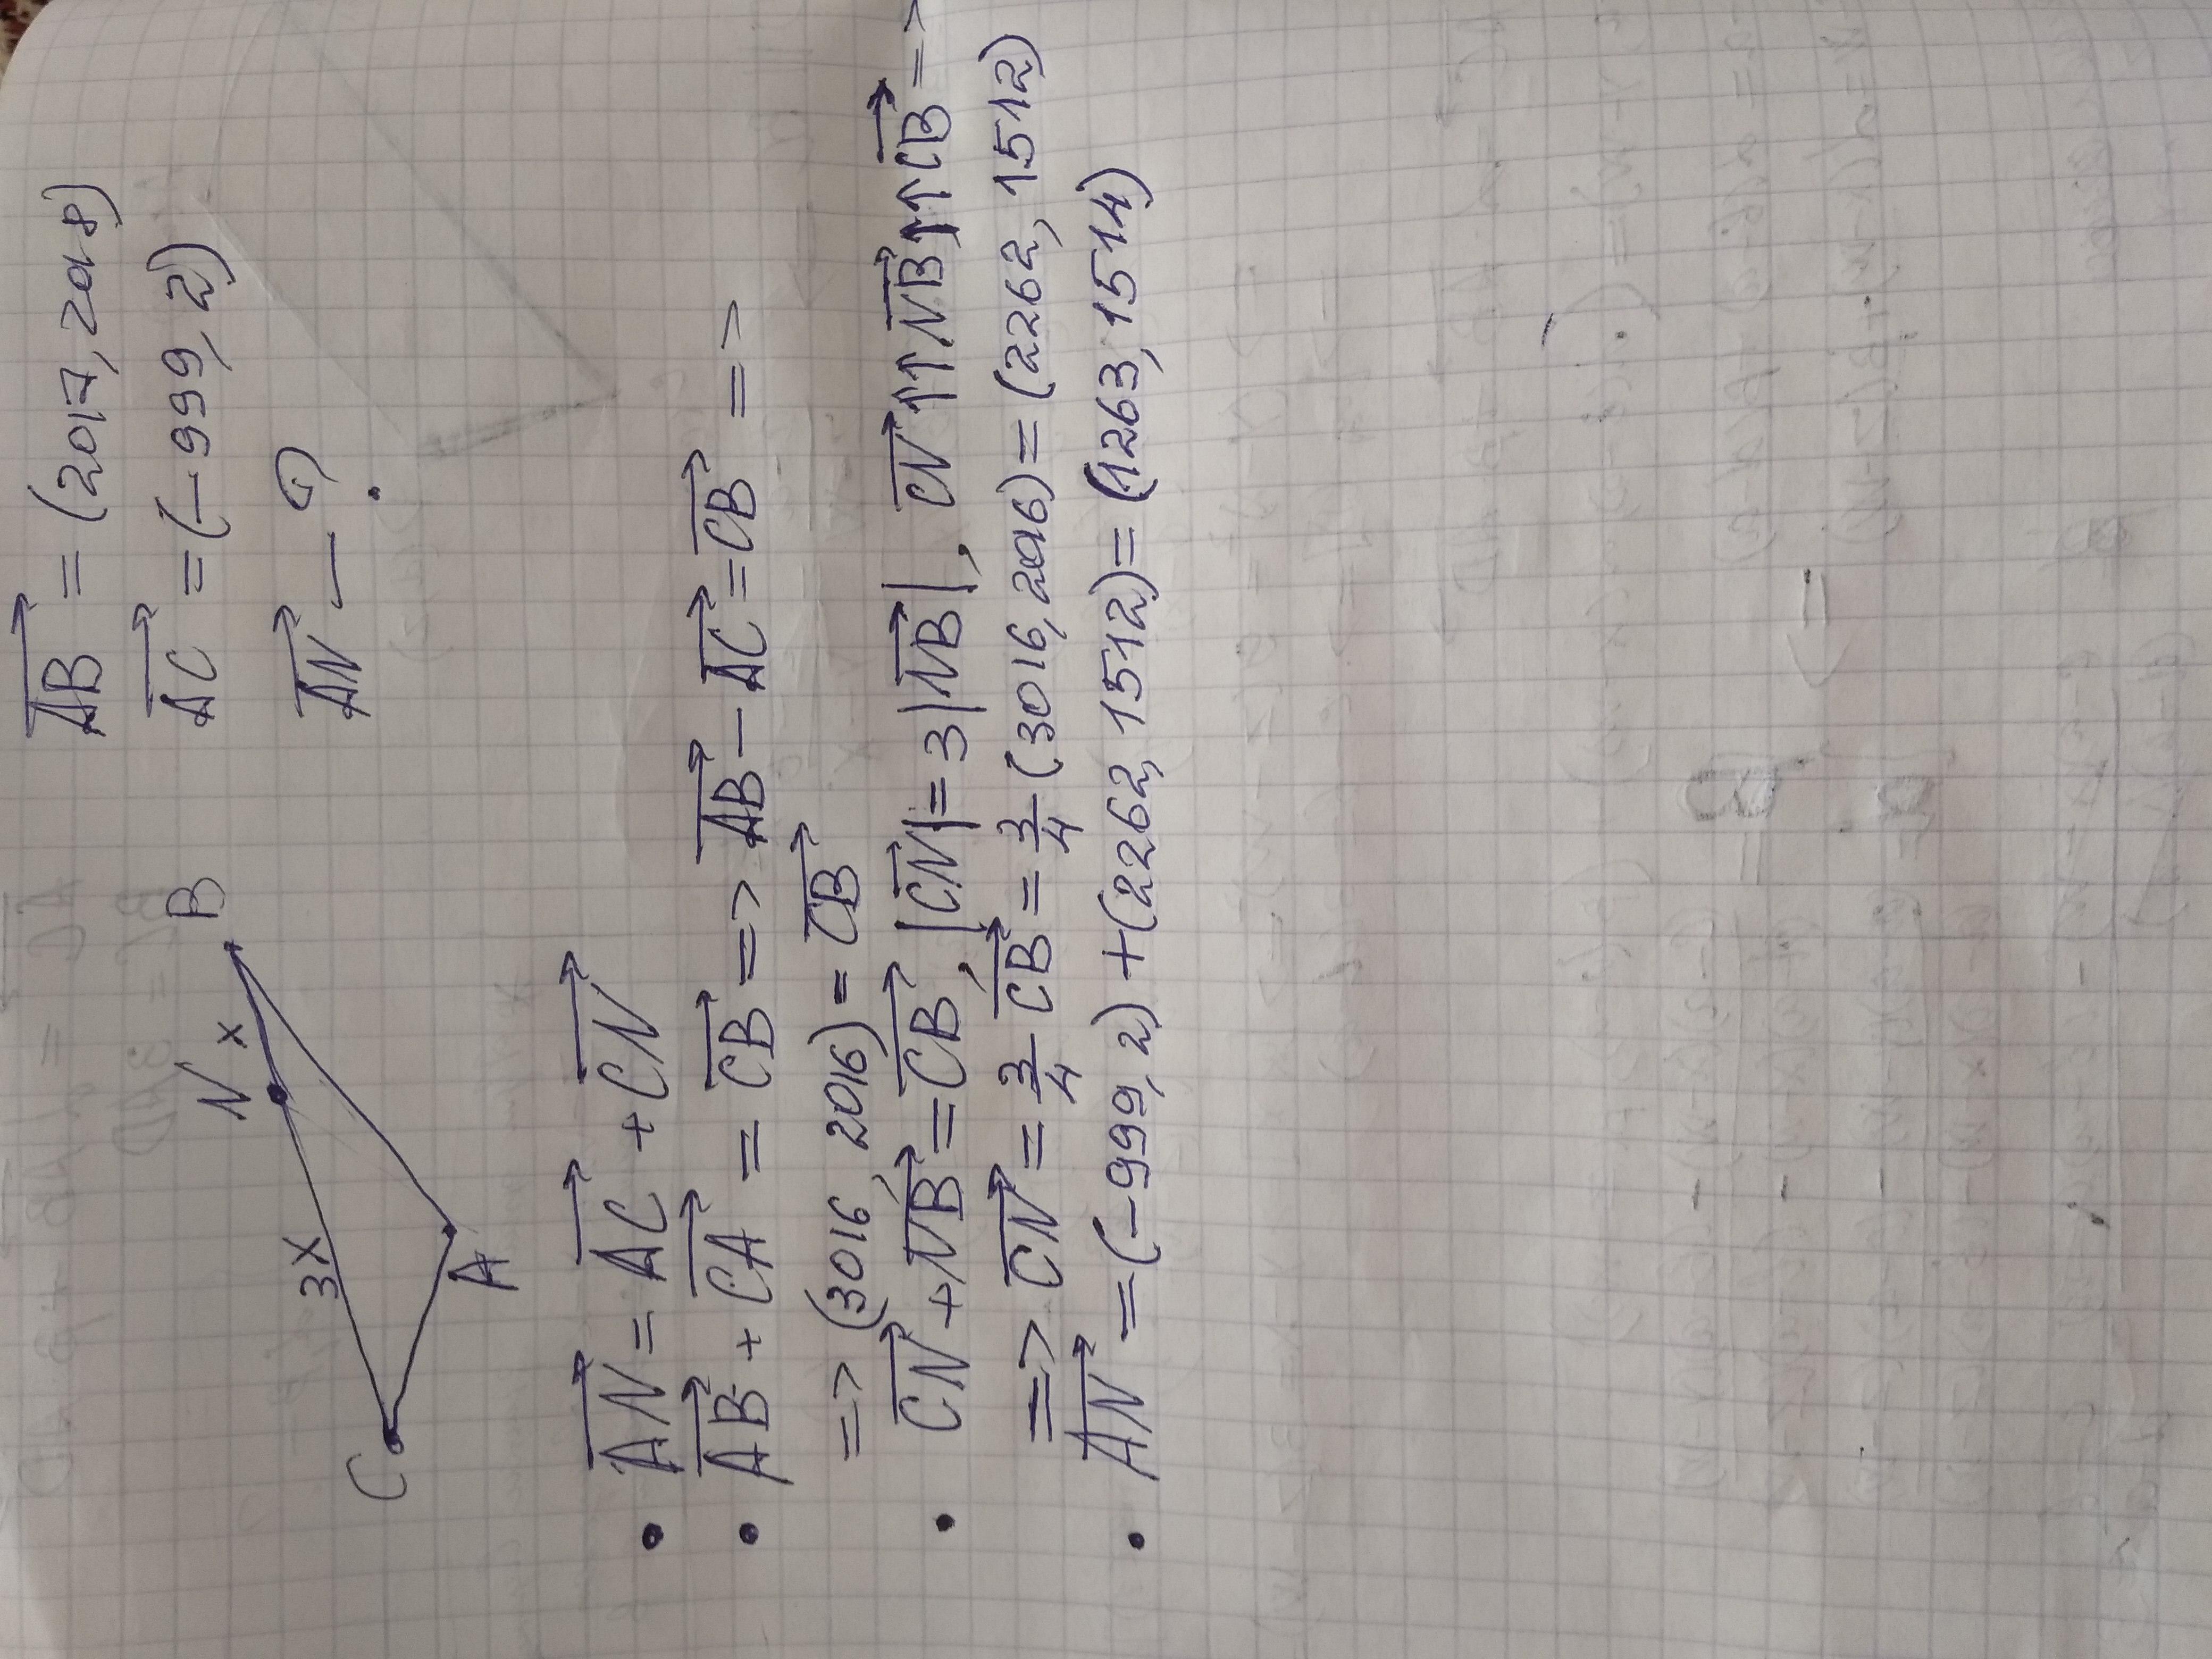 C 3x N x B
A
AB→ = (2017, 2018)
AC→ = (-999, 2)
AN→ - ?
• AN→ = AC→ + CN→
• AB→ + CA→ = CB→ => AB→ - AC→ = CB→ =>
=> (3016, 2016) = CB→
• CN→ + NB→ = CB→, |CN→| = 3|NB→|, CN→ ↑↑ NB→ ↑↑ CB→ =>
=> CN→ = 3/4 CB→ = 3/4 (3016, 2016) = (2262, 1512)
• AN→ = (-999, 2) + (2262, 1512) = (1263, 1514)